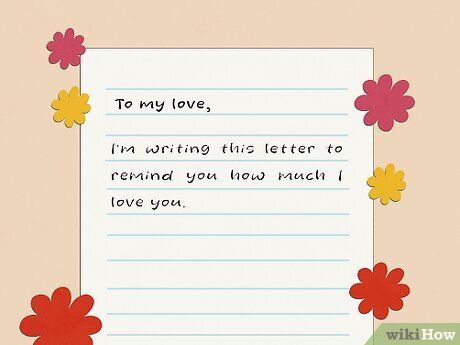 To my love,
I'm writing this letter to
remind you how much I
love you.
wikiHow